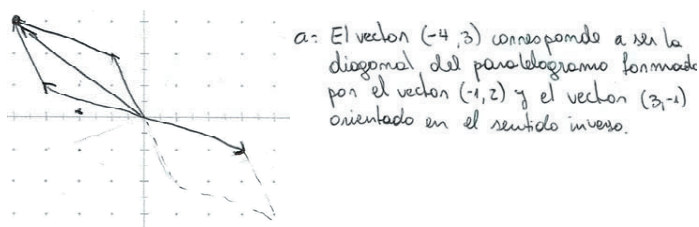 a: El vector (-4,3) corresponde a ser la
diagonal del paralelogramo formado
por el vector (-1,2) y el vector (3,-1)
orientado en el sentido inverso.